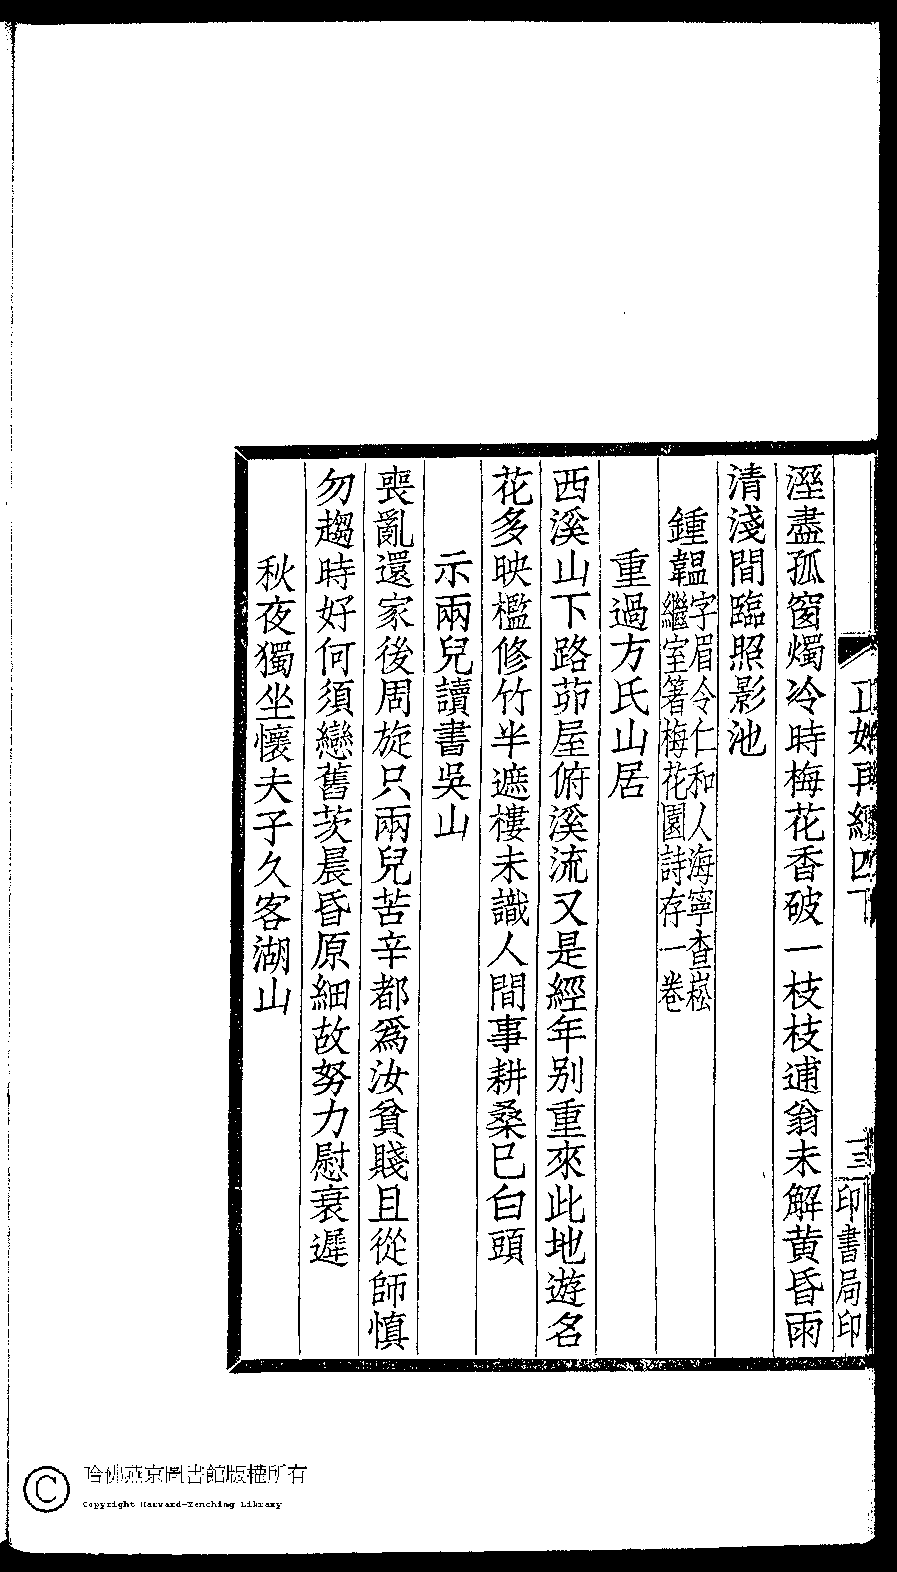 溼盡孤窗燭冷時梅花香破一枝枝逋翁未解黃昏雨
清淺間臨照影池
鍾韞字眉令仁和人海寧查崧
繼室箸梅花園詩存一卷
重過方氏山居
西溪山下路茆屋俯溪流又是經年别重來此地遊名
花多映檻修竹半遮樓未識人間事耕桑已白頭
示兩兒讀書吳山
喪亂還家後周旋只兩兒苦辛都爲汝貧賤且從師慎
勿趨時好何須戀舊茨晨昏原細故努力慰衰遲
秋夜獨坐懷夫子久客湖山
正始再續四下
十三
印書局印
哈佛燕京圖書館版權所有
Copyright Harvard-Yenching Library